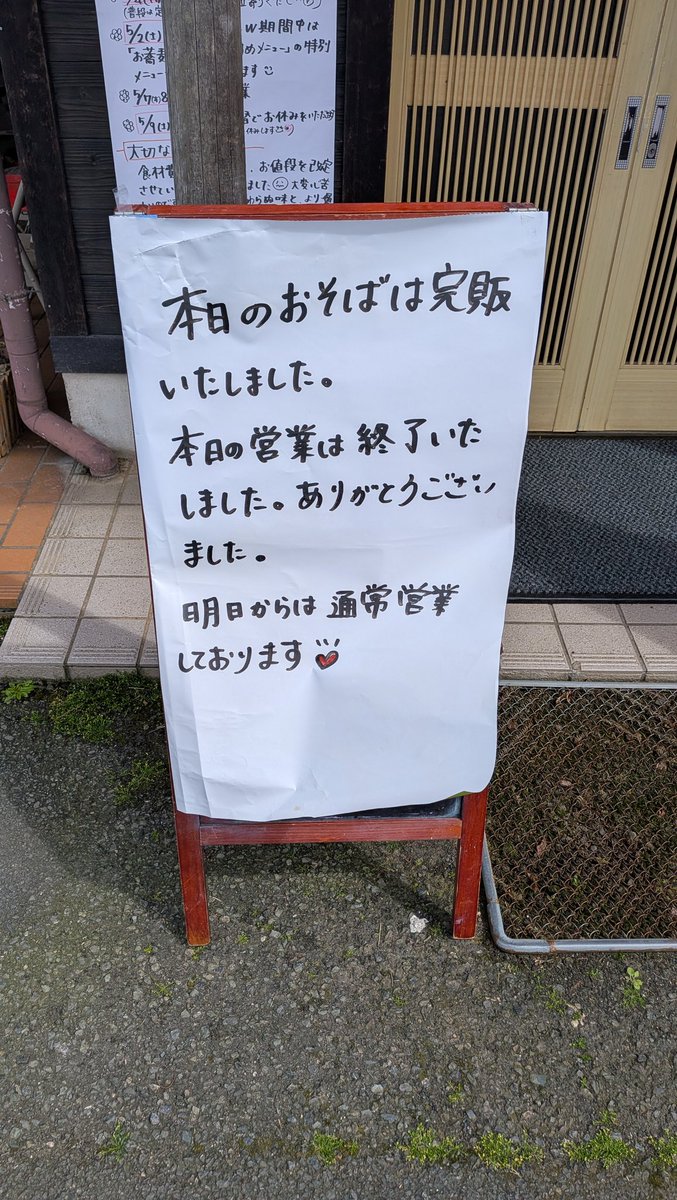 (普段は定
5/2(土)
W期間中は
「お蕎麦
めメニュー」の特別
メニュー
ます
5/7(木)8
業
5/9(土)
でお休みをいただ
休みします
大切な
食材費
、お値段を改定
させてい
ました
大変心苦
わらぬ味と、より
本日のおそばは完販
いたしました。
本日の営業は終了いた
しました。ありがとうござい
ました。
明日からは通常営業
しております